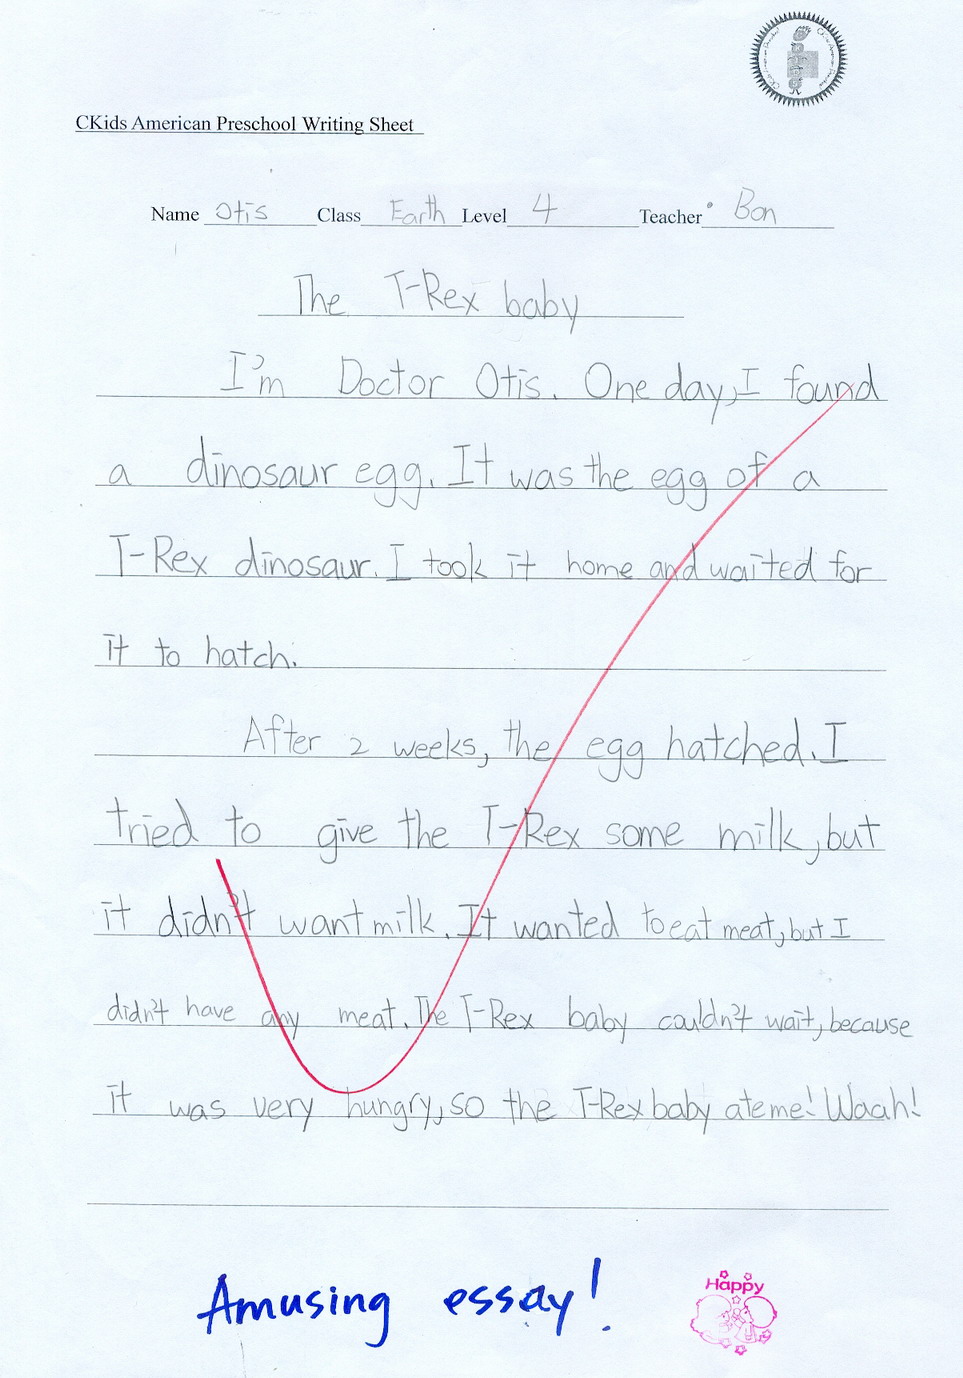 CKids American Preschool Writing Sheet
Name Otis Class Earth Level 4 Teacher Bon
The T-Rex baby
I'm Doctor Otis. One day, I found
a dinosaur egg. It was the egg of a
T-Rex dinosaur. I took it home and waited for
it to hatch.
After 2 weeks, the egg hatched. I
tried to give the T-Rex some milk, but
it didn't want milk. It wanted to eat meat, but I
didn't have any meat. The T-Rex baby couldn't wait, because
it was very hungry, so the T-Rex baby ate me! Waah!
Amusing essay!
Happy